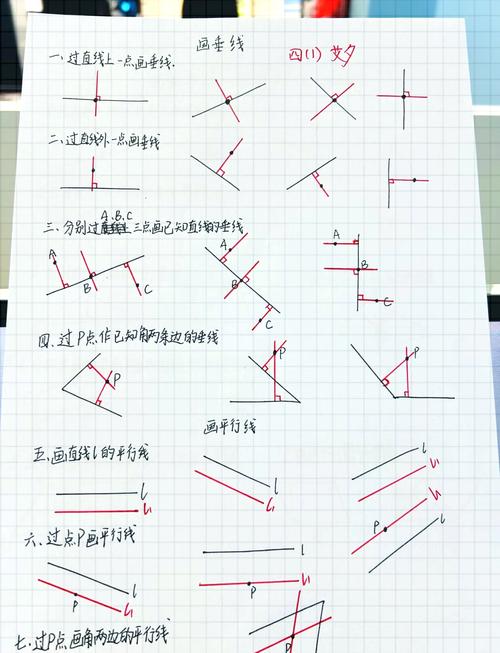 画垂线
四(1) 艾夕
一、过直线上一点画垂线.
二、过直线外一点画垂线
A、B、C
三、分别过三点画已知直线的垂线
A B C
A B C
A B C
四、过P点作已知角两条边的垂线
P P P
画平行线
五、画直线l的平行线
l l l
l₁ l₁ l₁
六、过点P画平行线
l l l
l₁ l₁ l₁
P P P
七、过P点画角两边的平行线
P